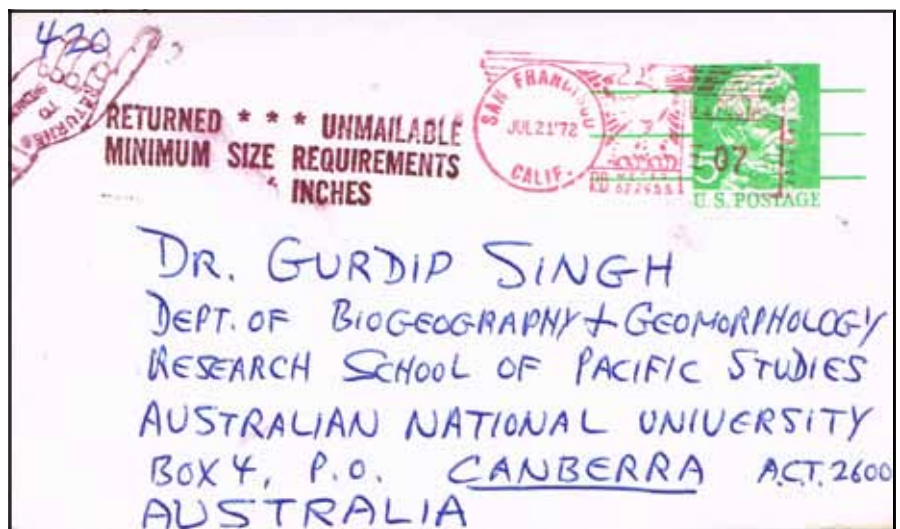 420
RETURNED TO SENDER
RETURNED * * * UNMAILABLE
MINIMUM SIZE REQUIREMENTS
INCHES
SAN FRANCISCO
JUL 21 '72
CALIF.
07
5
U.S. POSTAGE
DR. GURDIP SINGH
DEPT. OF BIOGEOGRAPHY + GEOMORPHOLOGY
RESEARCH SCHOOL OF PACIFIC STUDIES
AUSTRALIAN NATIONAL UNIVERSITY
BOX 4, P.O. CANBERRA A.C.T. 2600
AUSTRALIA